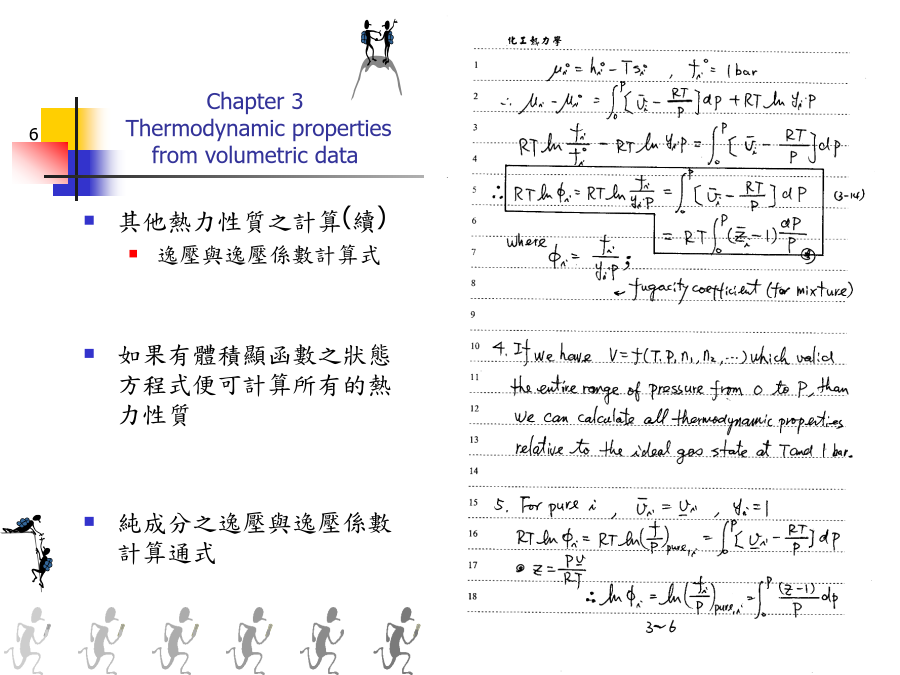 6
Chapter 3
Thermodynamic properties
from volumetric data
其他熱力性質之計算(續)
逸壓與逸壓係數計算式
如果有體積顯函數之狀態
方程式便可計算所有的熱
力性質
純成分之逸壓與逸壓係數
計算通式
化工熱力學
1 μᵢ° = hᵢ° − Tsᵢ° , fᵢ° = 1 bar
2 ∴ μᵢ − μᵢ° = ∫₀ᴾ [v̄ᵢ − RT/P] dP + RT ln yᵢP
3
RT ln fᵢ/fᵢ° − RT ln yᵢP = ∫₀ᴾ [v̄ᵢ − RT/P] dP
4
5 ∴ RT ln φᵢ = RT ln fᵢ/yᵢP = ∫₀ᴾ [v̄ᵢ − RT/P] dP (3-14)
6 = RT ∫₀ᴾ (z̄ᵢ − 1) dP/P
7 where φᵢ = fᵢ/yᵢP ;
8 ← fugacity coefficient (for mixture)
9
10 4. If we have V = f(T, P, n₁, n₂, ⋯) which valid
11 the entire range of pressure from 0 to P, than
12 we can calculate all thermodynamic properties
13 relative to the ideal gas state at T and 1 bar.
14
15 5. For pure i , v̄ᵢ = v̲ᵢ , yᵢ = 1
16 RT ln φᵢ = RT ln(f/P)pure,i = ∫₀ᴾ [v̲ᵢ − RT/P] dP
17 z = Pv̲/RT
18 ∴ ln φᵢ = ln(fᵢ/P)pure,i = ∫₀ᴾ (z−1)/P dP
3~6